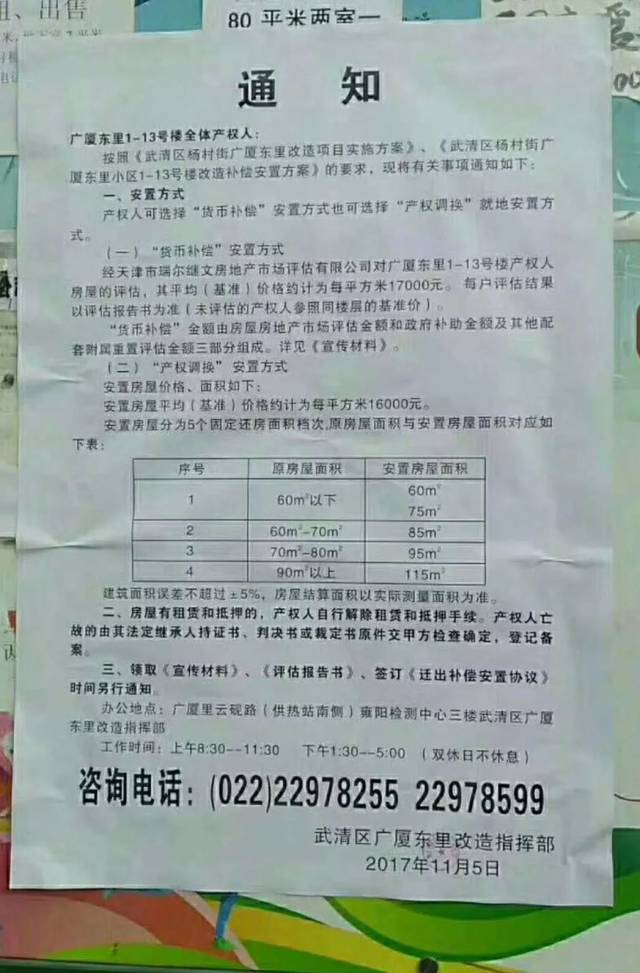 出售
80 平米两室一
通 知
广厦东里1-13号楼全体产权人：
按照《武清区杨村街广厦东里改造项目实施方案》、《武清区杨村街广
厦东里小区1-13号楼改造补偿安置方案》的要求，现将有关事项通知如下：
一、安置方式
产权人可选择“货币补偿”安置方式也可选择“产权调换”就地安置方
式。
（一）“货币补偿”安置方式
经天津市瑞尔继文房地产市场评估有限公司对广厦东里1-13号楼产权人
房屋的评估，其平均（基准）价格约计为每平方米17000元。每户评估结果
以评估报告书为准（未评估的产权人参照同楼层的基准价）。
“货币补偿”金额由房屋房地产市场评估金额和政府补助金额及其他配
套附属重置评估金额三部分组成。详见《宣传材料》。
（二）“产权调换”安置方式
安置房屋价格、面积如下：
安置房屋平均（基准）价格约计为每平方米16000元。
安置房屋分为5个固定还房面积档次,原房屋面积与安置房屋面积对应如
下表：
序号 原房屋面积 安置房屋面积
1 60m²以下 60m²
75m²
2 60m²-70m² 85m²
3 70m²-80m² 95m²
4 90m²以上 115m²
建筑面积误差不超过±5%，房屋结算面积以实际测量面积为准。
二、房屋有租赁和抵押的，产权人自行解除租赁和抵押手续。产权人亡
故的由其法定继承人持证书、判决书或裁定书原件交甲方检查确定，登记备
案。
三、领取《宣传材料》、《评估报告书》、签订《迁出补偿安置协议》
时间另行通知。
办公地点：广厦里云砚路（供热站南侧）雍阳检测中心三楼武清区广厦
东里改造指挥部
工作时间：上午8:30--11:30 下午1:30--5:00 （双休日不休息）
咨询电话：(022)22978255 22978599
武清区广厦东里改造指挥部
2017年11月5日